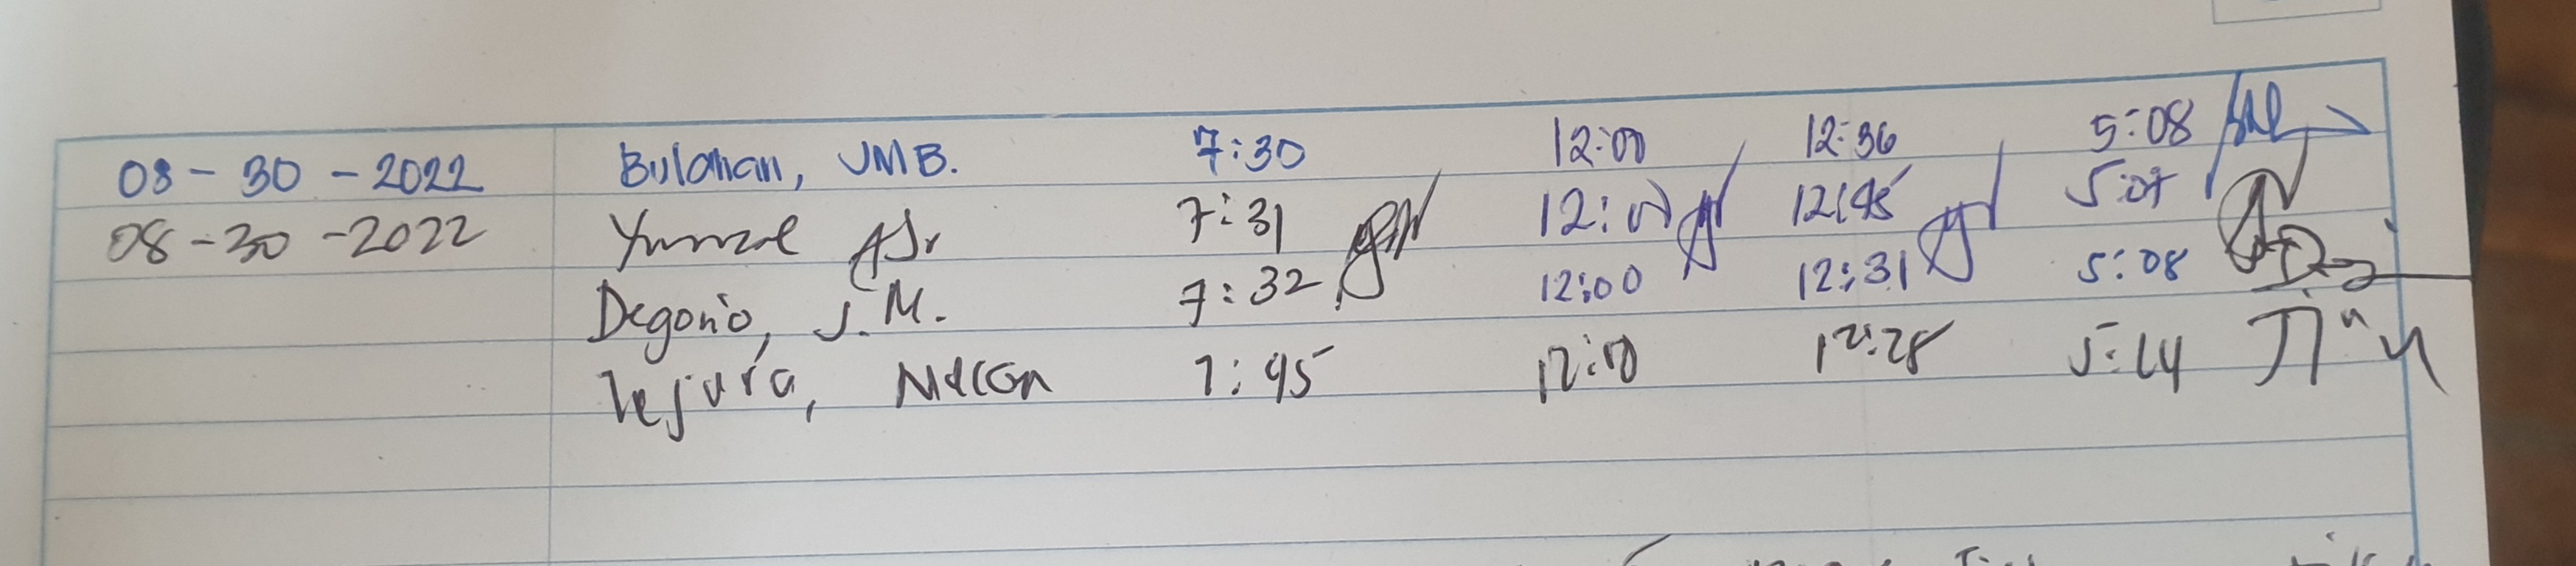 08-30-2022 Bulahan, JMB. 7:30 12:00 12:36 5:08
08-30-2022 7:31 12:00 12:45 5:07
Degorio, J.M. 7:32 12:00 12:31 5:08
Tejura, 7:45 12:10 12:28 5:14